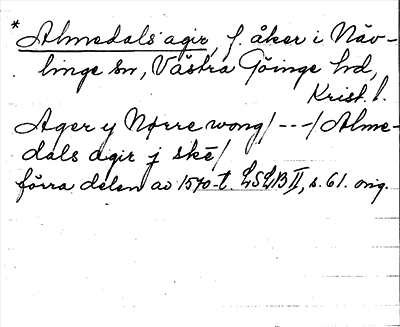 * Almedals agir, f. åker i Näv-
linge sn, Västra Göinge hd,
Krist. l.
Ager y Nørre wong/---/Alme-
dals agir j skē/
förra delen av 1570-t. LSLB II, s. 61. orig.